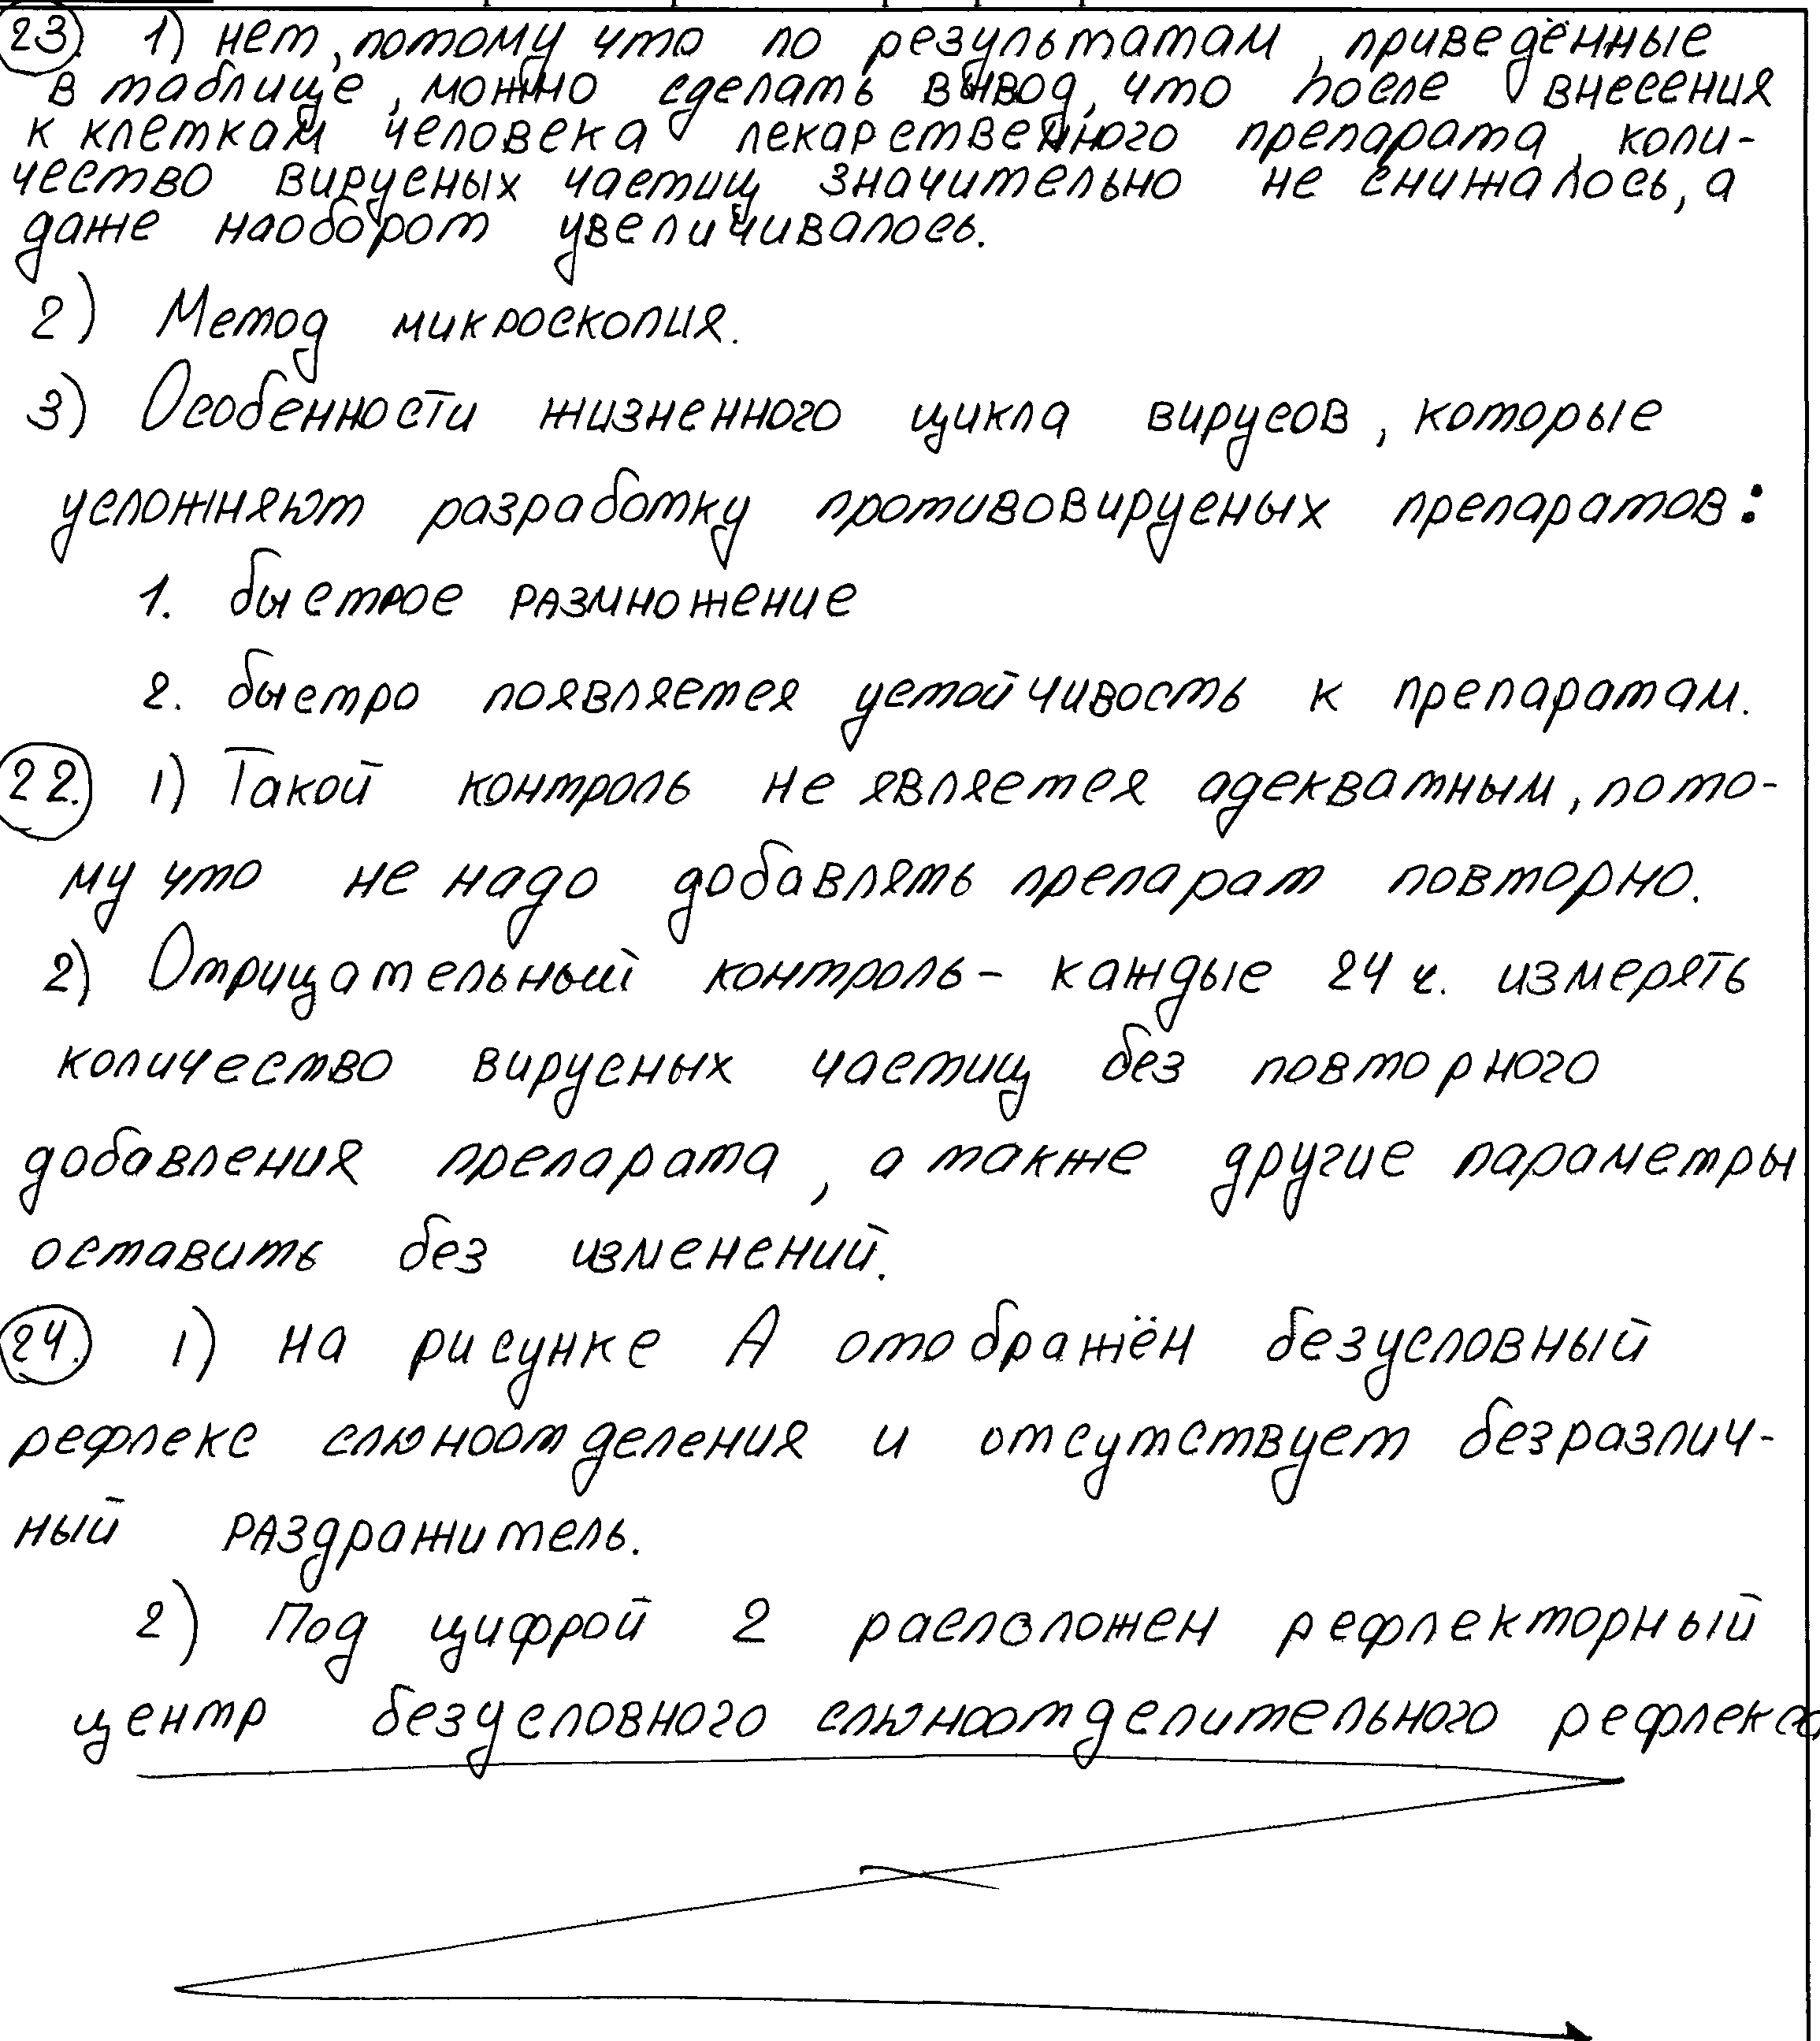 23. 1) нет, потому что по результатам, приведённые
в таблице, можно сделать вывод, что после внесения
к клеткам человека лекарственного препарата, коли-
чество вирусных частиц значительно не снижалось, а
даже наоборот увеличивалось.
2) Метод микроскопия.
3) Особенности жизненного цикла вирусов, которые
усложняют разработку противовирусных препаратов:
1. быстрое размножение
2. быстро появляется устойчивость к препаратам.
22. 1) Такой контроль не является адекватным, пото-
му что не надо добавлять препарат повторно.
2) Отрицательный контроль - каждые 24 ч. измерять
количество вирусных частиц без повторного
добавления препарата, а также другие параметры
оставить без изменений.
24. 1) на рисунке А отображён безусловный
рефлекс слюноотделения и отсутствует безразлич-
ный раздражитель.
2) Под цифрой 2 расположен рефлекторный
центр безусловного слюноотделительного рефлекса